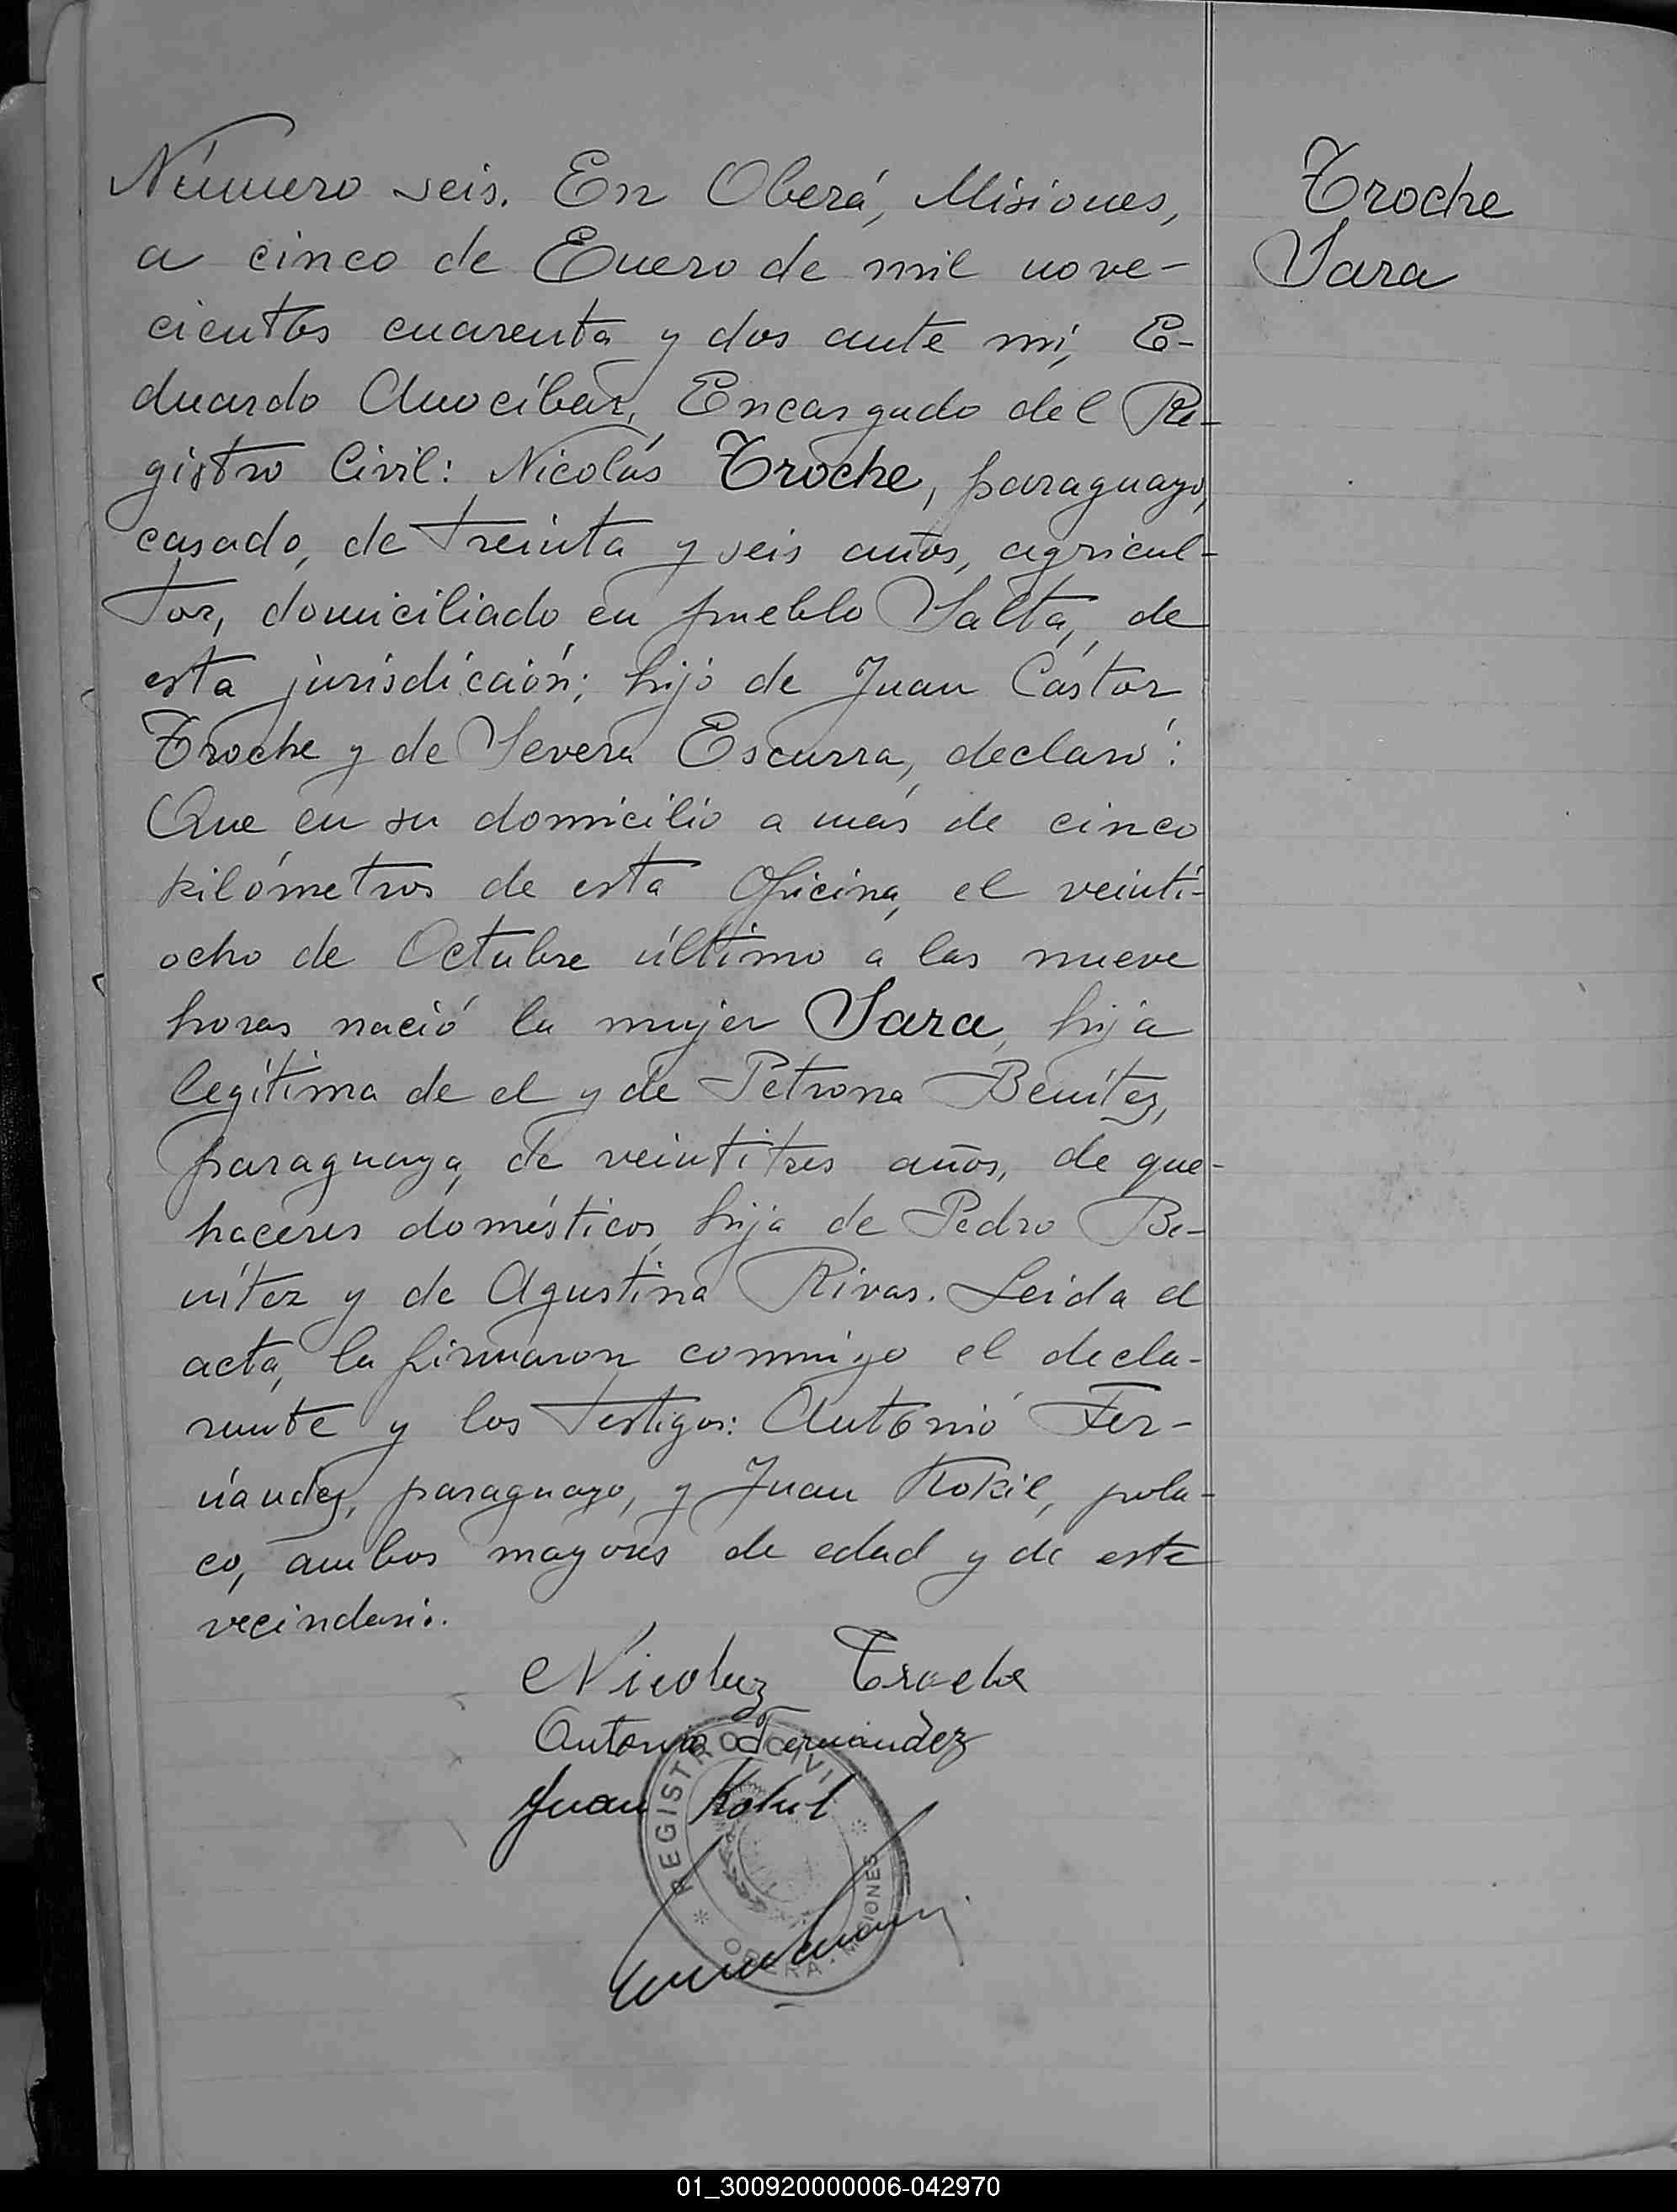 Número seis. En Oberá, Misiones,
a cinco de Enero de mil nove-
cientos cuarenta y dos ante mí, E-
duardo Anocíbar, Encargado del Re-
gistro Civil: Nicolás Troche, paraguayo,
casado, de treinta y seis años, agricul-
tor, domiciliado en pueblo Salta, de
esta jurisdicción; hijo de Juan Cástor
Troche y de Severa Escurra, declaró:
Que en su domicilio a más de cinco
kilómetros de esta Oficina, el veinti-
ocho de Octubre último a las nueve
horas nació la mujer Sara, hija
legítima de el y de Petrona Benítez,
paraguaya, de veintitres años, de que-
haceres domésticos, hija de Pedro Be-
nítez y de Agustina Rivas. Leida el
acta, la firmaron conmigo el decla-
rante y los testigos: Antonio Fer-
nández, paraguayo, y Juan Kokil, pola-
co, ambos mayores de edad y de este
vecindario.
Troche
Sara
Nicolaz Troche
Antonio Fernández
Juan Kokil
REGISTRO CIVIL
OBERA - MISIONES
01_300920000006-042970